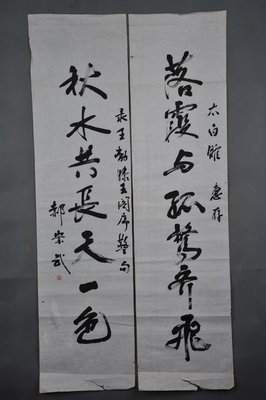 太白館 惠存
落霞与孤鹜齐飛
录王勃滕王阁序警句
秋水共長天一色
郝崇武